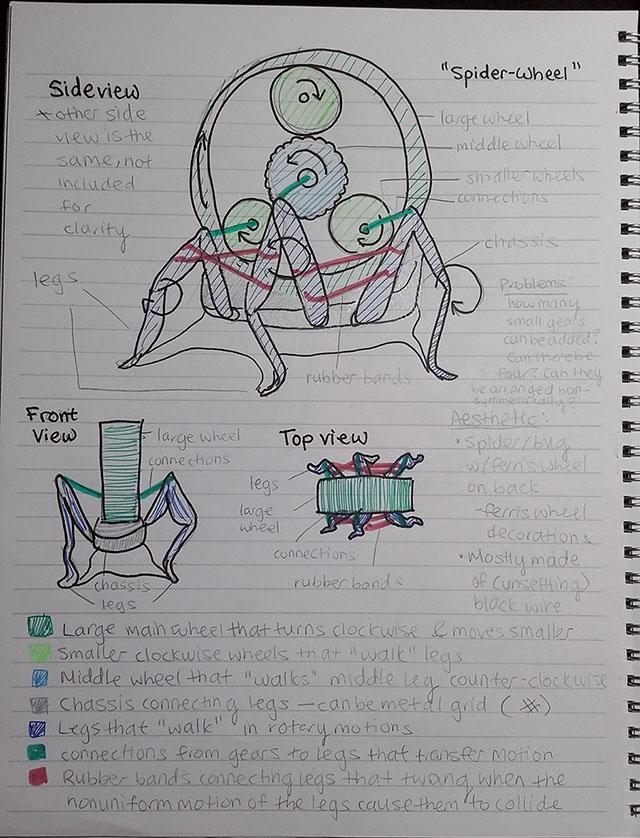 "Spider-Wheel"
Sideview
*other side
view is the
same, not
included
for
clarity
large wheel
middle wheel
smaller wheels
connections
chassis
legs
rubber bands
Problems:
how many
small gears
can be added?
Can there be
four? Can they
be arranged non-
symmetrically?
Front
View
large wheel
connections
chassis
legs
Top view
legs
large
wheel
connections
rubber bands
Aesthetic:
• Spider/bug
w/ferris wheel
on back
- ferris wheel
decorations
• Mostly made
of (unsettling)
black wire
Large main wheel that turns clockwise & moves smaller
Smaller clockwise wheels that "walk" legs
Middle wheel that "walks" middle leg counter-clockwise
Chassis connecting legs - can be metal grid (#)
Legs that "walk" in rotery motions
connections from gears to legs that transfer motion
Rubber bands connecting legs that twang when the
nonuniform motion of the legs cause them to collide